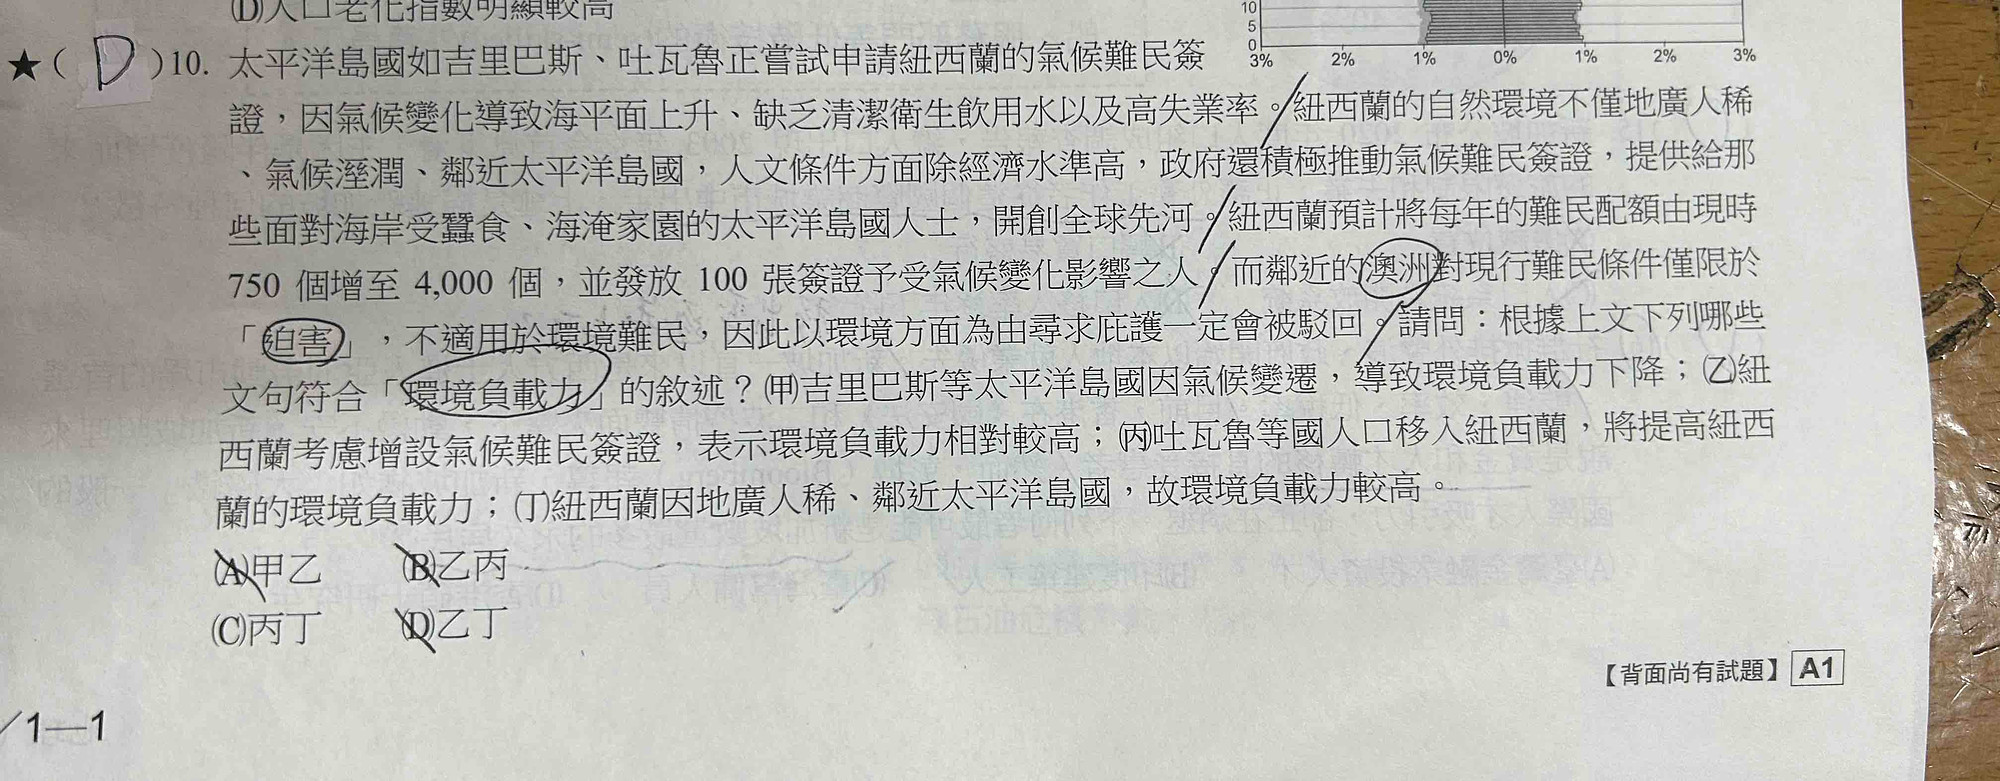 (D)人口老化指數明顯較高
10
5
0
3% 2% 1% 0% 1% 2% 3%
★( D )10. 太平洋島國如吉里巴斯、吐瓦魯正嘗試申請紐西蘭的氣候難民簽
證，因氣候變化導致海平面上升、缺乏清潔衛生飲用水以及高失業率。紐西蘭的自然環境不僅地廣人稀
、氣候溼潤、鄰近太平洋島國，人文條件方面除經濟水準高，政府還積極推動氣候難民簽證，提供給那
些面對海岸受蠶食、海淹家園的太平洋島國人士，開創全球先河。紐西蘭預計將每年的難民配額由現時
750 個增至 4,000 個，並發放 100 張簽證予受氣候變化影響之人。而鄰近的澳洲對現行難民條件僅限於
「迫害」，不適用於環境難民，因此以環境方面為由尋求庇護一定會被駁回。請問：根據上文下列哪些
文句符合「環境負載力」的敘述？(甲)吉里巴斯等太平洋島國因氣候變遷，導致環境負載力下降；(乙)紐
西蘭考慮增設氣候難民簽證，表示環境負載力相對較高；(丙)吐瓦魯等國人口移入紐西蘭，將提高紐西
蘭的環境負載力；(丁)紐西蘭因地廣人稀、鄰近太平洋島國，故環境負載力較高。
(A)甲乙 (B)乙丙
(C)丙丁 (D)乙丁
【背面尚有試題】 A1
/1—1